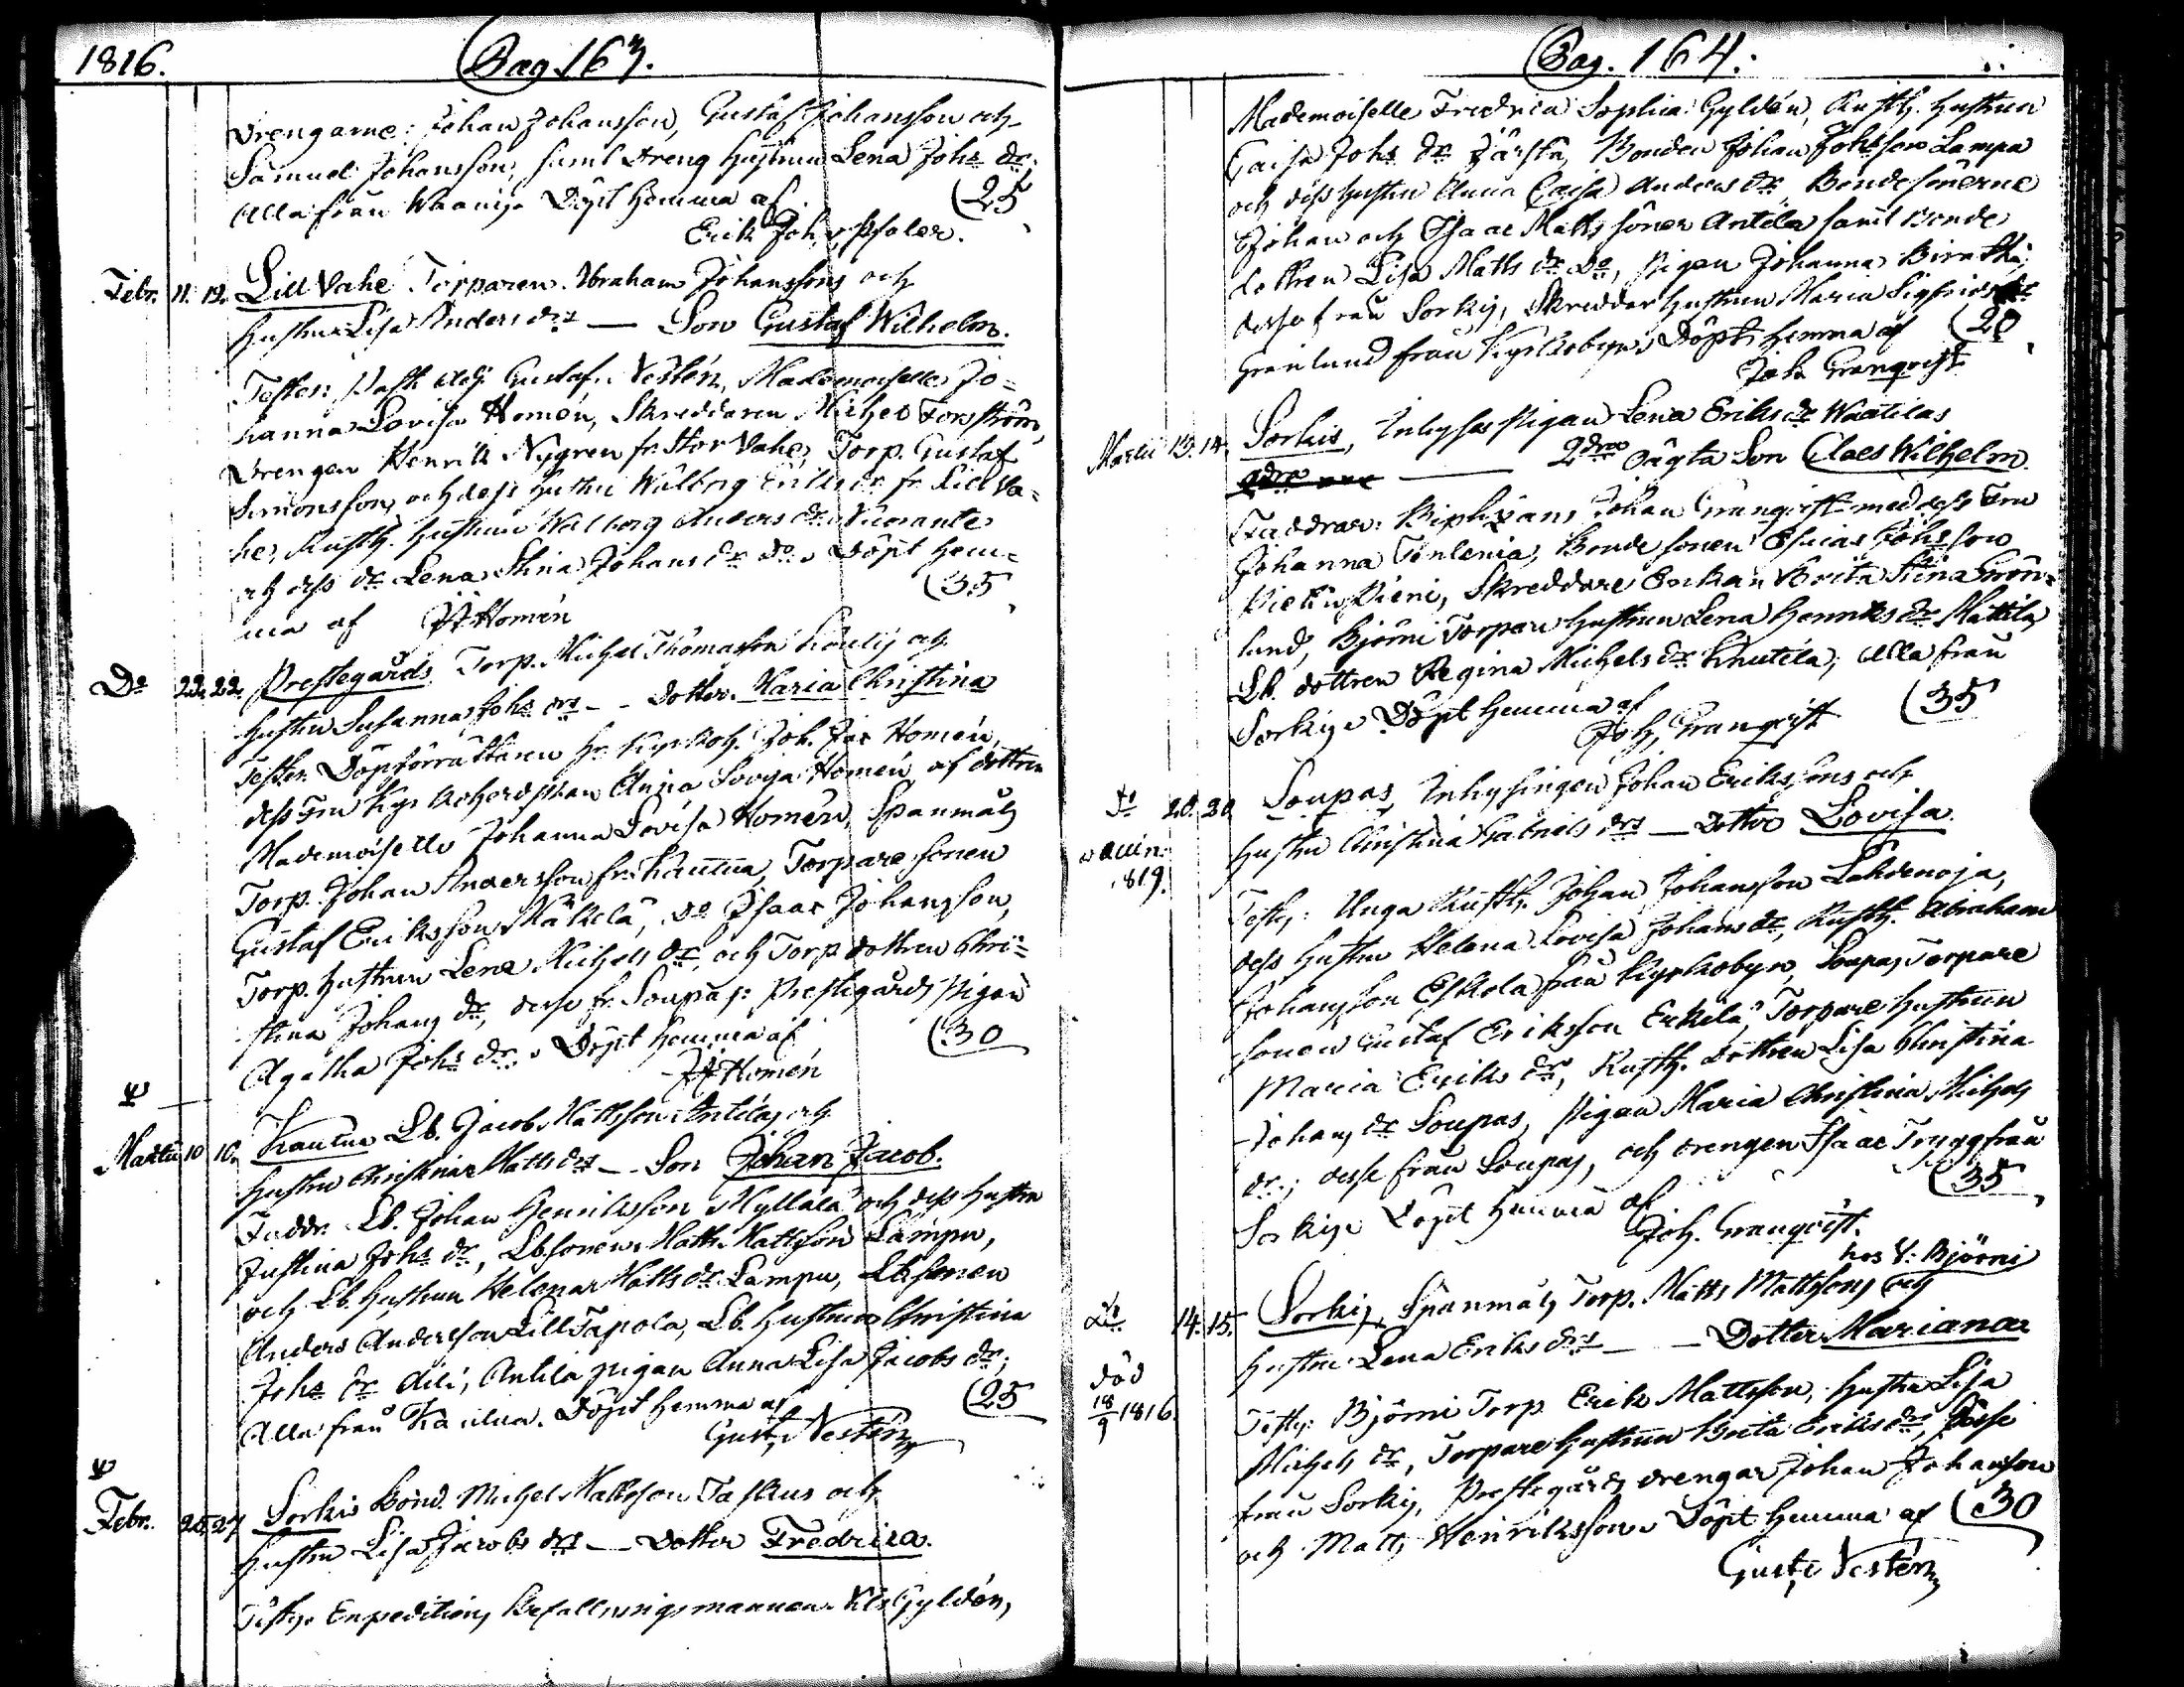 1816.
Pag. 163.
Drengarne: Johan Johansson, Gustaf Johansson och
Samuel Johansson, samt Dreng hustrun Lena Johs dr,
Alla från Waanij. Döpt hemma af (25
Erik Joh.
Febr. 11. 12. Lill Vahe Torparen Abraham Johanssons och
hustrus Lisa Anders drs — Son Gustaf Wilhelm.
Testes: Past. Adj. Gustaf Nestén, Mademoiselle Jo=
hanna Lovisa Homén, Skreddaren Michel Forsström,
Drengen Henrik Nygren fr. Stor Vahe, Torp. Gustaf
Simonsson, och dess hustru Walborg Eriks dr fr. Lill Va=
he, Rusth. hustrun Walborg Anders dr
och dess dr Lena Stina Johans dr Do. Döpt hem=
ma af JJ Homén (35
Do 22. 22. Prestegårds Torp. Michel Thomasson och
hustru Susanna Johs drs — Dotter Maria Christina
Testes Döpförrättaren Hr Kyrkoh. Joh. Jac Homén,
dess Fru Kyrkoherdskan Anna Lovisa Homén, af dottren
Mademoiselle Johanna Lovisa Homén, Spanmåls
Torp. Johan Andersson fr. Kautua, Torpare sonen
Gustaf Eriksson Käkelä, Do Isaac Johansson,
Torp. hustrun Lena Michels dr, och Torp. dottren Chri=
stina Johans dr, desse fr. Soupas: Prestegårds pigan
Agatha Johs dr. Döpt hemma af (30
JJ Homén
Martii 10 10. Kautua Lb. Jacob Mattsson Antilas och
hustru Christina Matts drs — Son Johan Jacob.
Faddr. Lb. Johan Henriksson Myllälä och dess hustru
Justina Johs dr, Lb sonen Matts Mattsson Lampu,
och Lb. hustrun Helena Matts dr Lampu, Lb sonen
Anders Andersson Lill Tapola, Lb. hustrun Christina
Johs dr Ali, Antila pigan Anna Lisa Jacobs dr;
Alla från Kautua. Döpt hemma af (25
Gust. Nestén
Febr. 25. 27 Sorkis Bond. Michel Mattsson Taskus och
hustru Lisa Jacobs drs — Dotter Fredrica.
Testes: Expeditions Befallningsmannen Gyldén,
Pag. 164.
Mademoiselle Fredrica Sophia Gyldén, Rusth. hustrun
Caisa Johs dr Järska, Bonden Johan Johsson Lampa
och dess hustru Anna Caisa Anders dr Bondesönerne
Johan och Isaac Matts söner Antila samt Bonde
dottren Lisa Matts dr Do, Pigan Johanna
desse från Sorkis, Skreddar hustrun Maria Sigfrids dr
Grönlund från Kyrkobyn. Döpt hemma af (20
Joh Granqvist
Martii 13. 14. Sorkis, Inhyses Pigan Lena Eriks dr Waatilas
2dra Oägta Son Claes Wilhelm.
Faddrar: Johan Granqvist med dess Fru
Johanna Tenlenia, Bonde sonen Esaias Johsson
Pietin Pieni, Skreddare Enkan Brita Stina Grön=
lund, Björni Torpare hustrun Lena Henriks dr Mattila,
Lb. dottren Regina Michels dr Knutila, Alla från
Sorkis. Döpt hemma af (35
Joh. Granqvist
Do 20. 20 Soupas, Inhysingen Johan Erikssons och
hustru Christina Gabriels drs — Dotter Lovisa.
1819.
Testes: Unga Rusth. Johan Johansson Lahdenoja,
dess hustru Helena Lovisa Johans dr, Rusth. Abraham
Johansson Eskola från Kyrkobyn, Soupas Torpare
sonen Gustaf Eriksson Erkilä, Torpare hustrun
Maria Eriks dr, Rusth. dottren Lisa Christina
Johans dr Soupas, Pigan Maria Christina Michels
dr; desse från Soupas, och drengen Isaac Trygg från
Sorkis. Döpt hemma af (35
Joh. Granqvist.
hos V. Björni
Do 14. 15. Sorkis, Spanmåls Torp. Matts Mattssons och
hustru Lena Eriks drs — Dotter Mariana
död
18/9 1816.
Testes: Björni Torp. Erik Mattsson, hustru Lisa
Michels dr, Torpare hustrun Brita Eriks dr, desse
från Sorkis, Prestegårds drengar Johan Johansson
och Matts Henriksson. Döpt hemma af (30
Gust. Nestén